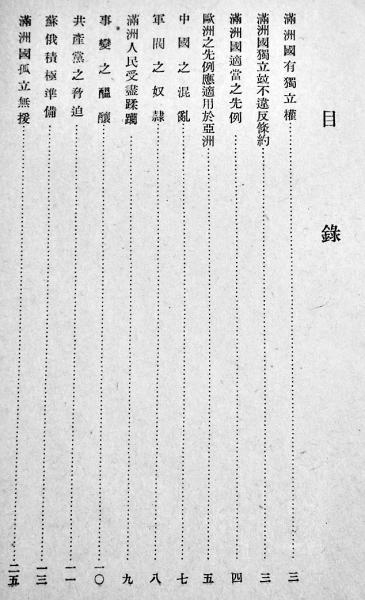 目錄
滿洲國有獨立權……三
滿洲國獨立竝不違反條約……三
滿洲國適當之先例……四
歐洲之先例應適用於亞洲……五
中國之混亂……七
軍閥之奴隷……八
滿洲人民受盡蹂躪……九
事變之醞釀……一〇
共產黨之脅迫……一一
蘇俄積極準備……一三
滿洲國孤立無援……二五